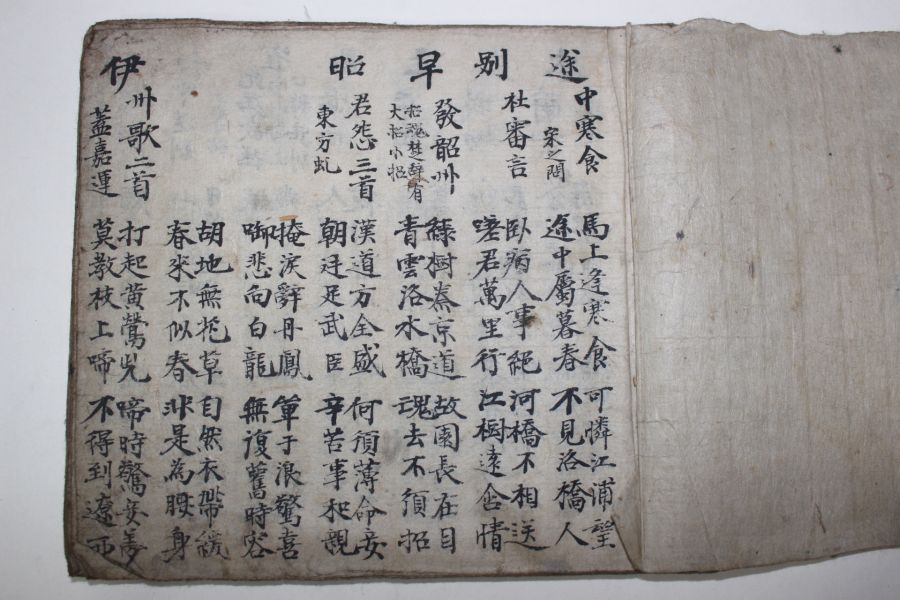 途中寒食
宋之問
馬上逢寒食 可憐江浦望
途中屬暮春 不見洛橋人
別杜審言
臥病人事絕 河橋不相送
嗟君萬里行 江樹遠含情
早發韶州
招魂楚辭有
大招小招
綠樹秦京道 故園長在目
青雲洛水橋 魂去不須招
昭君怨三首
東方虬
漢道方全盛 何須薄命妾
朝廷足武臣 辛苦事和親
掩淚辭丹鳳 單于浪驚喜
啣悲向白龍 無復舊時容
胡地無花草 自然衣帶緩
春來不似春 非是為腰身
伊州歌二首
蓋嘉運
打起黃鶯兒 啼時驚妾夢
莫教枝上啼 不得到遼西